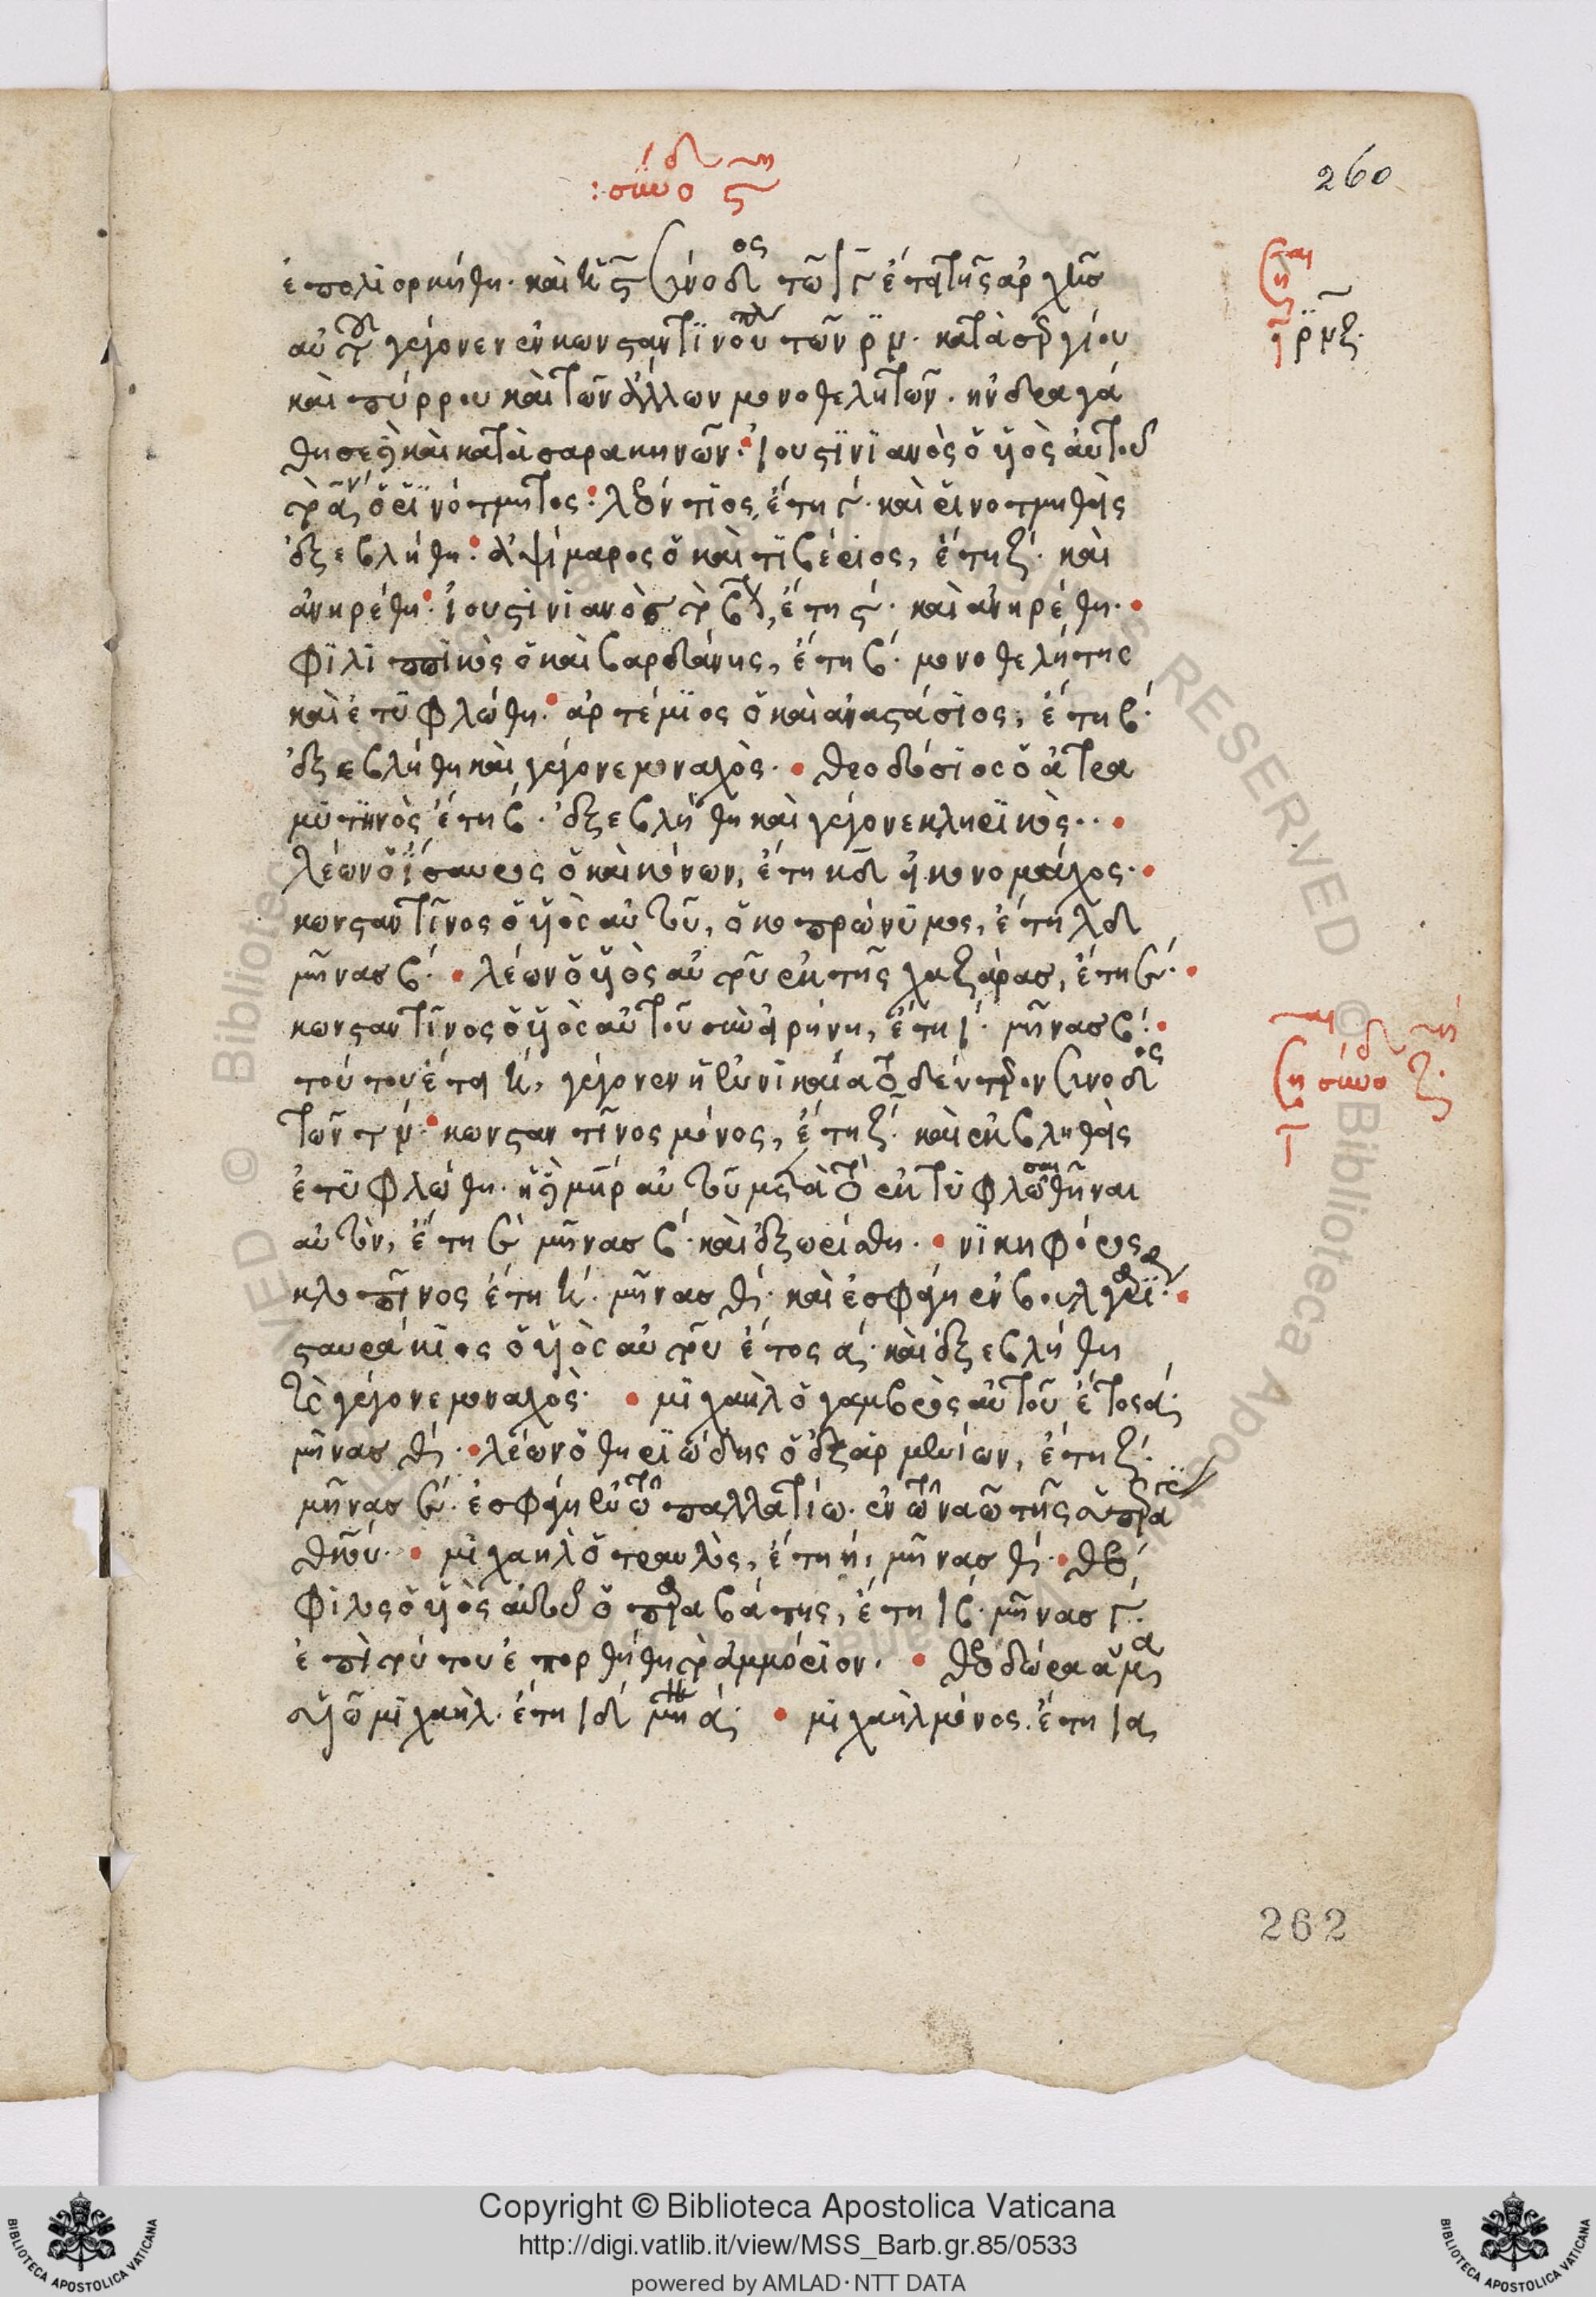 :σύνοδ ϛη
260
ἐπολιορκήθη· καὶ ἡ ϛ σύνοδος τῶ ιγ ἔτει τῆς ἀρχῆσ
αὐτοῦ γέγονεν ἐν κωνσταντϊνουπόλ τῶν ρ̈ν· κατὰ σεργίου
ρ̈ν ξ·
καὶ πύρρου καὶ τῶν ἄλλων μονοθελητῶν· ἠνδραγά
θησε δὲ καὶ κατὰ σαρακηνῶν· ἰουστϊνϊανὸς ὁ υἱὸς αὐτοῦ
ὁ ῥϊνότμητος· λεόντιος, ἔτη γ· καὶ ῥινοτμηθεὶς
ἐξεβλήθη· ἀψίμαρος ὁ καὶ τϊβέριος, ἔτη ζ· καὶ
ἀνηρέθη· ἰουστινιανὸσ τὸ β, ἔτη ϛ· καὶ ἀνηρέθη·
φϊλϊππϊκὸς ὁ καὶ βαρδάνης, ἔτη β· μονοθελήτης
καὶ ἐτϋφλώθη· ἀρτέμϊος ὁ καὶ ἀναστάσϊος, ἔτη β·
ἐξεβλήθη καὶ γέγονε μοναχὸς· θεοδόσϊος ὁ ἀτρα
μϋτϊνὸς ἔτη β· ἐξεβλήθη καὶ γέγονε κληρϊκὸς··
λέων ὁ ἴσαυρος ὁ καὶ κόνων, ἔτη κδ εἰκονομάχος·
κωνσταντῖνος ὁ υἱὸς αὐτοῦ, ὁ κοπρώνϋμος, ἔτη λδ
μῆνασ β· λέων ὁ υἱὸς αὐτοῦ ἐκ τῆς χαζάρασ, ἔτη ε·
κωνσταντῖνος ὁ υἱὸς αὐτοῦ σὺν εἰρήνη, ἔτη ι· μῆνασ β·
τούτου ἔτει η, γέγονεν ἡ ἐν νϊκαία τὸ δεύτερον σύνοδος
ση σύνοδ ζ·
τῶν τν· κωνσταντῖνος μόνος, ἔτη ζ· καὶ ἐκβληθεὶς
ἐτϋφλώθη· ἡ δὲ μηρ αὐτοῦ μετὰ τὸ ἐκτϋφλωθῆναι
αὐτὸν, ἔτη ε μῆνασ β· καὶ ἐξωρίσθη· νϊκηφόρος
κλοπῖνος ἔτη η· μῆνασ θ· καὶ ἐσφάγη ἐν βουλγαρϊ·
σταυράκϊος ὁ υἱὸς αὐτοῦ ἔτος α· καὶ ἐξεβλήθη
καὶ γέγονε μοναχὸς· μϊχαὴλ ὁ γαμβρὸς αὐτοῦ ἔτος α·
μῆνασ θ· λέων ὁ θηρϊώδης ὁ ἐξ ἀρμενίων, ἔτη ζ·
μῆνασ ε· ἐσφάγη ἐν τῶ παλλατίω· ἐν τῶ ναῶ τῆς ὑπεραγ
θκου· μϊχαηλ ὁ τραυλὸς, ἔτη η, μῆνασ θ· θεό
φϊλος ὁ υἱὸς αὐτοῦ ὁ παραβάτης, ἔτη ιβ· μῆνασ γ·
ἐπὶ τούτου ἐπορθήθη τὸ ἀμμόριον· θεοδώρα ἅμα
υἱῶ μϊχαήλ· ἔτη ιδ μη α· μϊχαὴλ μόνος· ἔτη ια
262
Copyright © Biblioteca Apostolica Vaticana
http://digi.vatlib.it/view/MSS_Barb.gr.85/0533
powered by AMLAD·NTT DATA